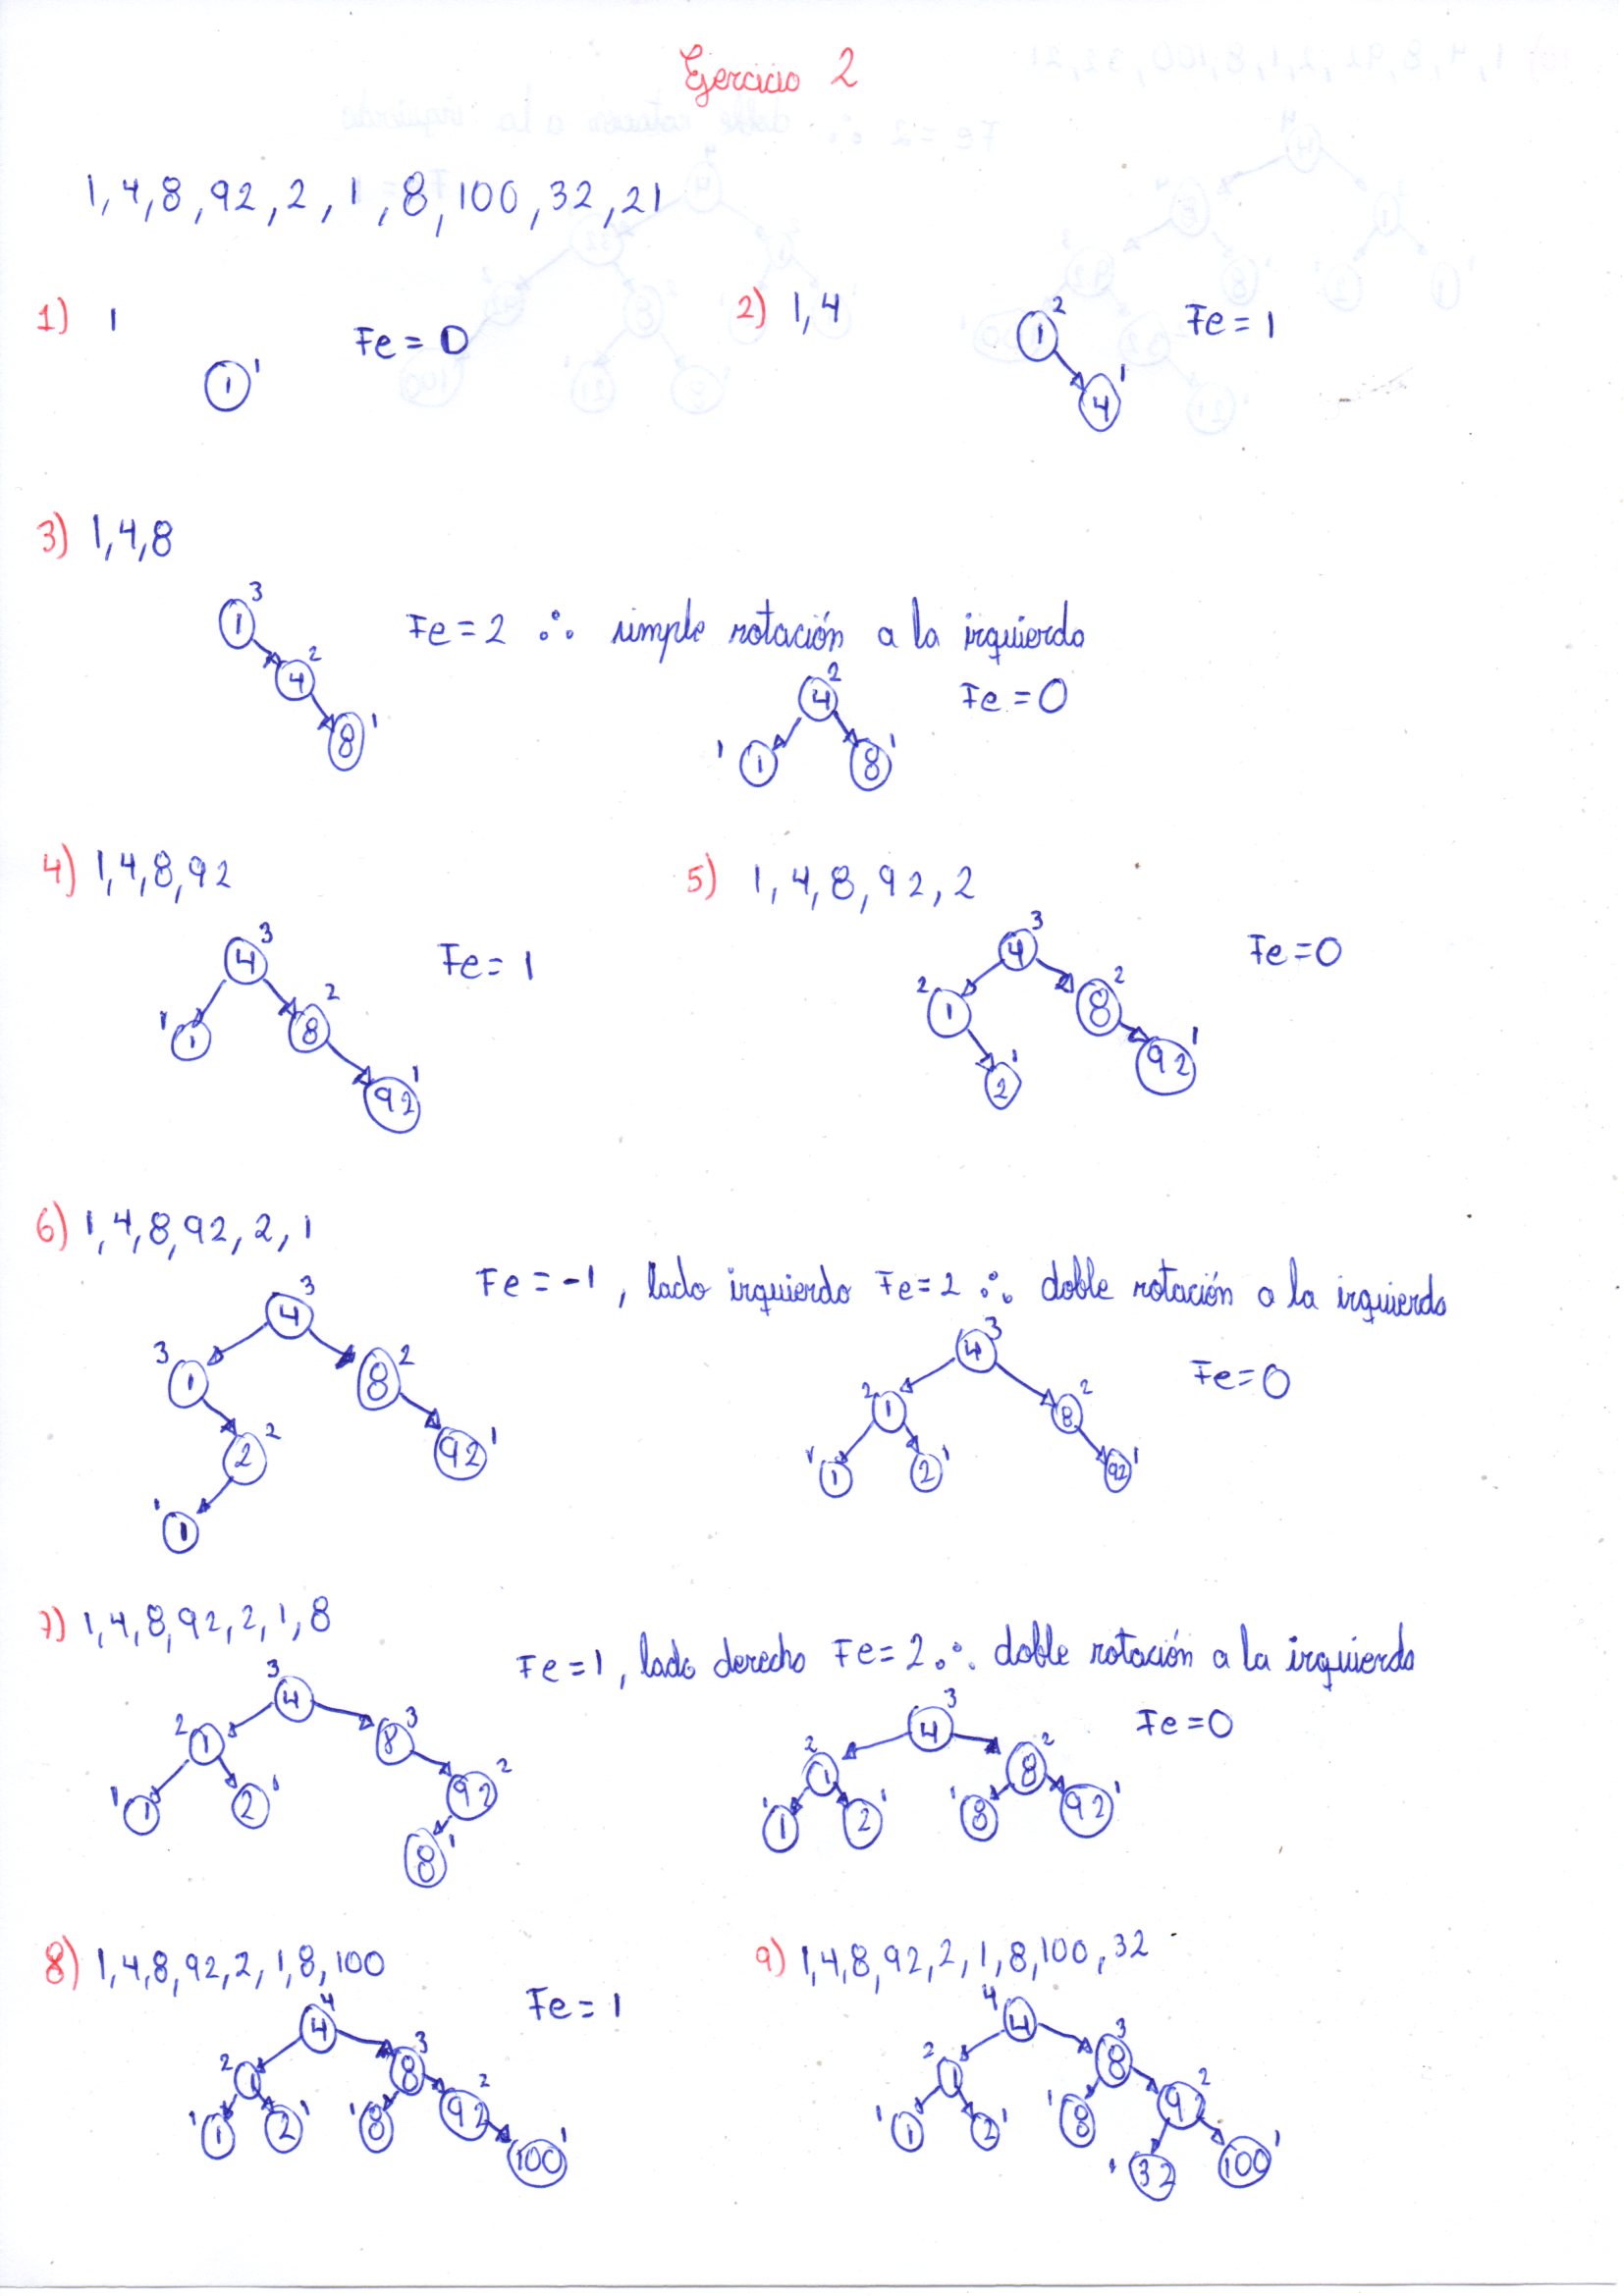 Ejercicio 2
1, 4, 8, 92, 2, 1, 8, 100, 32, 21
1) 1
1 1
Fe = 0
2) 1, 4
1 2
4 1
Fe = 1
3) 1, 4, 8
1 3
4 2
8 1
Fe = 2 ∴ simple rotación a la izquierda
4 2
1 1
8 1
Fe = 0
4) 1, 4, 8, 92
4 3
1 1
8 2
92 1
Fe = 1
5) 1, 4, 8, 92, 2
4 3
2 1
8 2
2 1
92 1
Fe = 0
6) 1, 4, 8, 92, 2, 1
4 3
3 1
8 2
2 2
92 1
1 1
Fe = -1, lado izquierdo Fe = 2 ∴ doble rotación a la izquierda
4 3
2 1
8 2
1 1
2 1
92 1
Fe = 0
7) 1, 4, 8, 92, 2, 1, 8
3 4
2 1
8 3
1 1
2 1
92 2
8 1
Fe = 1, lado derecho Fe = 2 ∴ doble rotación a la izquierda
4 3
2 1
8 2
1 1
2 1
1 8
92 1
Fe = 0
8) 1, 4, 8, 92, 2, 1, 8, 100
4 4
2 1
8 3
1 1
2 1
1 8
92 2
100 1
Fe = 1
9) 1, 4, 8, 92, 2, 1, 8, 100, 32
4 4
2 1
8 3
1 1
2 1
1 8
92 2
1 32
100 1